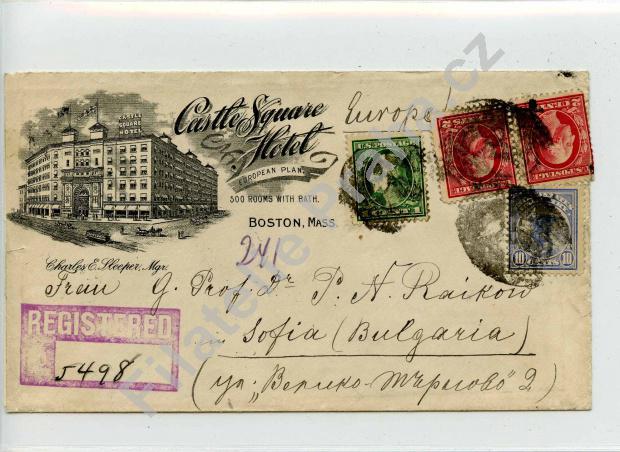 CASTLE
SQUARE
HOTEL
Castle Square
Hotel
EUROPEAN PLAN.
500 ROOMS WITH BATH.
BOSTON, MASS.
Charles E. Sleeper, Mgr.
Europe!
U.S. POSTAGE
1 CENT 1
U.S. POSTAGE
2 CENTS 2
U.S. POSTAGE
2 CENTS 2
10 10
241
Frau G. Prof. Dr P. N. Raikow
in
Sofia (Bulgaria)
(ул. „Велико-Търново" 2)
REGISTERED
5498
Filatelie Praha cz